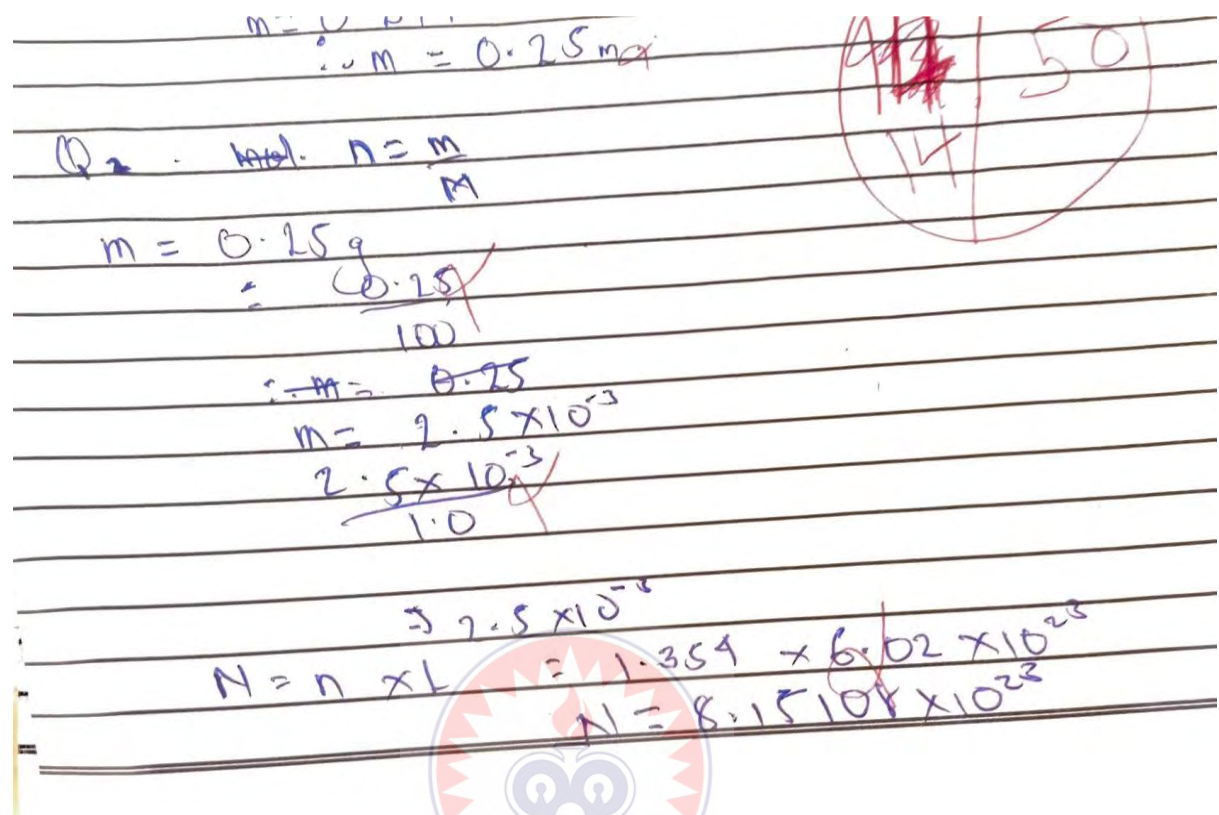 ∴ m = 0.25 mg
14 | 50
Q2. n = m/M
m = 0.25g
= 0.25/100
∴ m = 0.25
m = 2.5 × 10⁻³
2.5 × 10⁻³/1.0
⇒ 2.5 × 10⁻³
N = n × L = 1.354 × 6.02 × 10²³
N = 8.15108 × 10²³